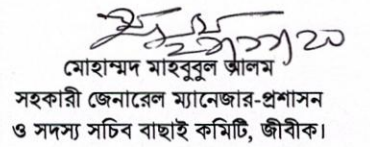 মোহাম্মদ মাহবুবুল আলম
সহকারী জেনারেল ম্যানেজার-প্রশাসন
ও সদস্য সচিব বাছাই কমিটি, জীবীক।